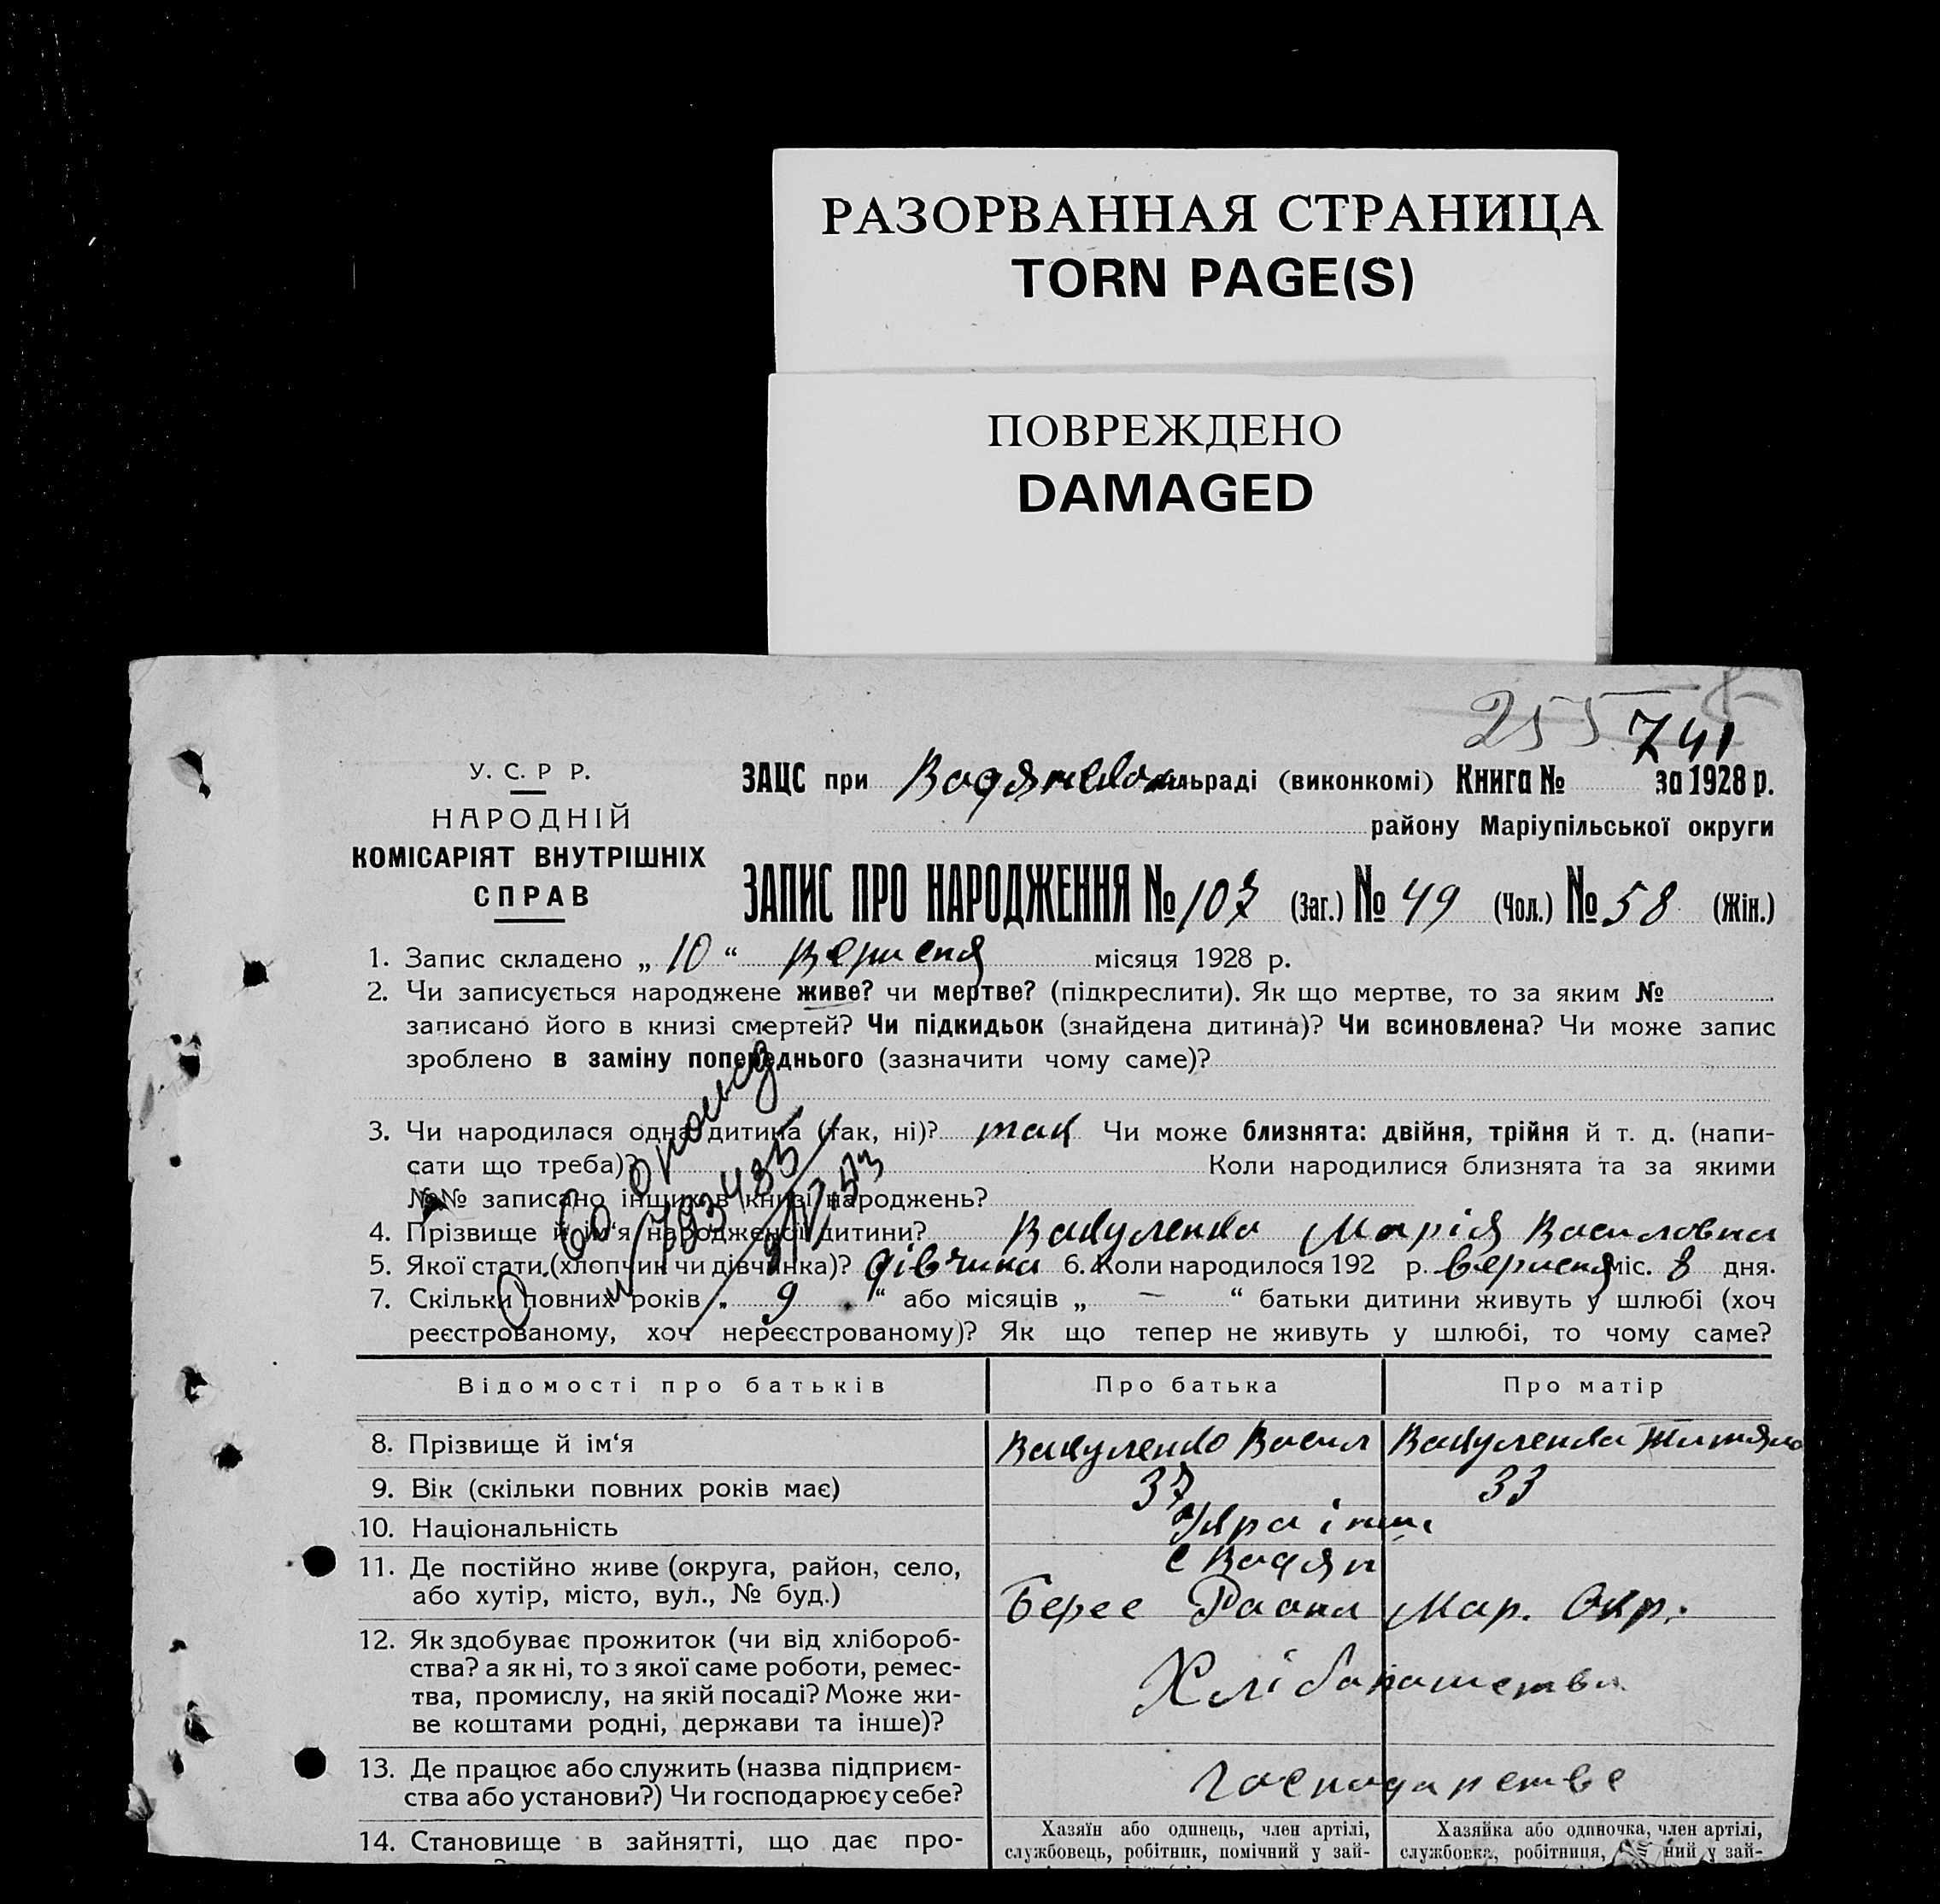 РАЗОРВАННАЯ СТРАНИЦА
TORN PAGE(S)
ПОВРЕЖДЕНО
DAMAGED
255
741
У. С. Р Р.
НАРОДНІЙ
КОМІСАРІЯТ ВНУТРІШНІХ
СПРАВ
ЗАЦС при сільраді (виконкомі) Книга № за 1928 р.
району Маріупільської округи
ЗАПИС ПРО НАРОДЖЕННЯ № 107 (Заг.) № 49 (Чол.) № 58 (Жін.)
1. Запис складено „ 10 “ вересня місяця 1928 р.
2. Чи записується народжене живе? чи мертве? (підкреслити). Як що мертве, то за яким №
записано його в книзі смертей? Чи підкидьок (знайдена дитина)? Чи всиновлена? Чи може запис
зроблено в заміну попереднього (зазначити чому саме)?
3. Чи народилася одна дитина (так, ні)? так Чи може близнята: двійня, трійня й т. д. (напи-
сати що треба)? Коли народилися близнята та за якими
№№ записано інших в книзі народжень?
4. Прізвище й ім‘я народженої дитини? Вакуленко Марія Василовна
5. Якої стати (хлопчик чи дівчинка)? дівчина 6. Коли народилося 192 р. вересня міс. 8 дня.
7. Скільки повних років „ 9 “ або місяців „ — “ батьки дитини живуть у шлюбі (хоч
реєстрованому, хоч нереєстрованому)? Як що тепер не живуть у шлюбі, то чому саме?
Відомості про батьків Про батька Про матір
8. Прізвище й ім‘я Вакуленко Васил Вакуленка
9. Вік (скільки повних років має) 37 33
10. Національність Украінці
11. Де постійно живе (округа, район, село, с Водян
або хутір, місто, вул., № буд.) Берес Раона Мар. Окр.
12. Як здобуває прожиток (чи від хлібороб-
ства? а як ні, то з якої саме роботи, ремес-
тва, промислу, на якій посаді? Може жи- Хлібопашество
ве коштами родні, держави та інше)?
13. Де працює або служить (назва підприєм-
ства або установи?) Чи господарює у себе? Господарстве
14. Становище в зайнятті, що дає про-
Хазяїн або одинець, член артілі,
службовець, робітник, помічний у зай-
Хазяйка або одиночка, член артілі,
службовка, робітниця, ний у зай-